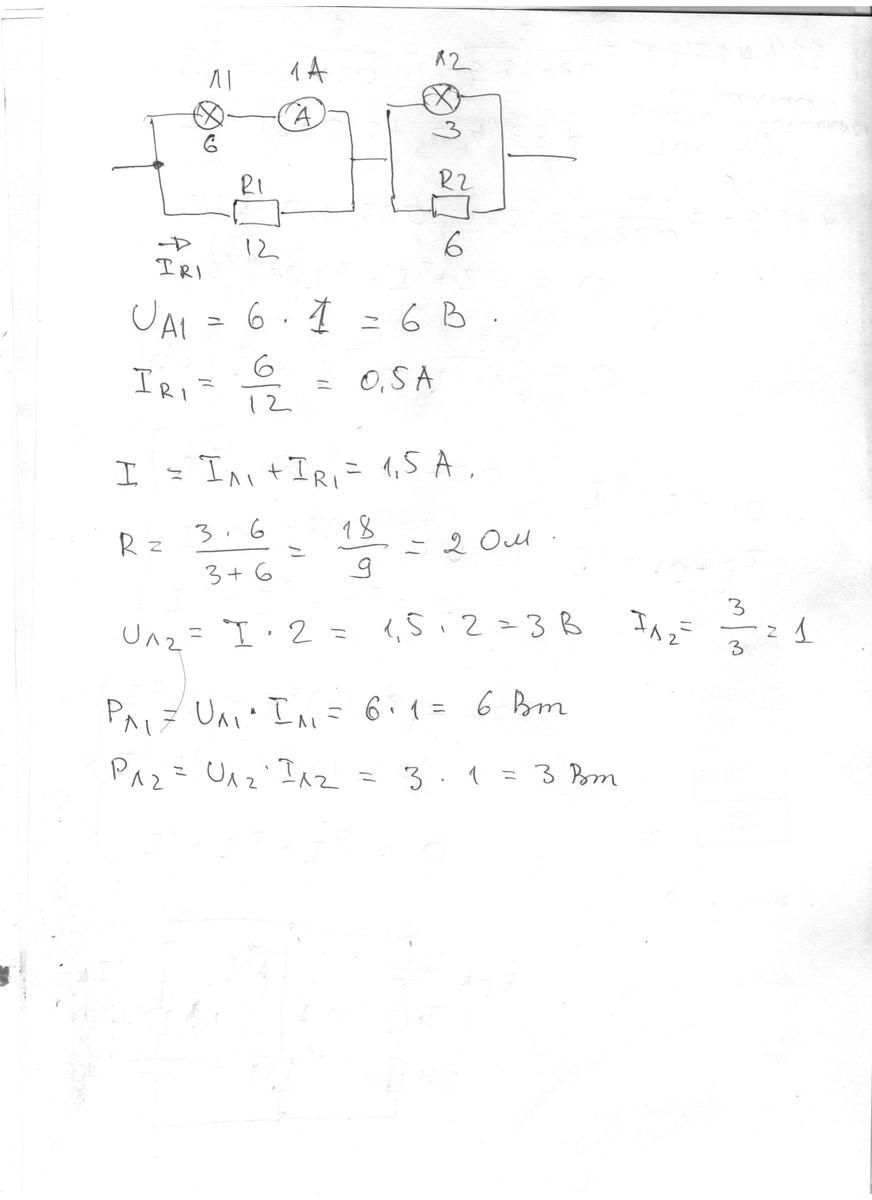 Л1 1А Л2
А
6 3
R1 R2
12 6
I R1
U Л1 = 6 · 1 = 6 В.
I R1 = 6/12 = 0,5 А
I = I Л1 + I R1 = 1,5 А.
R = 3 · 6 / 3 + 6 = 18/9 = 2 Ом.
U Л2 = I · 2 = 1,5 · 2 = 3 В I Л2 = 3/3 = 1
P Л1 = U Л1 · I Л1 = 6 · 1 = 6 Вт
P Л2 = U Л2 · I Л2 = 3 · 1 = 3 Вт